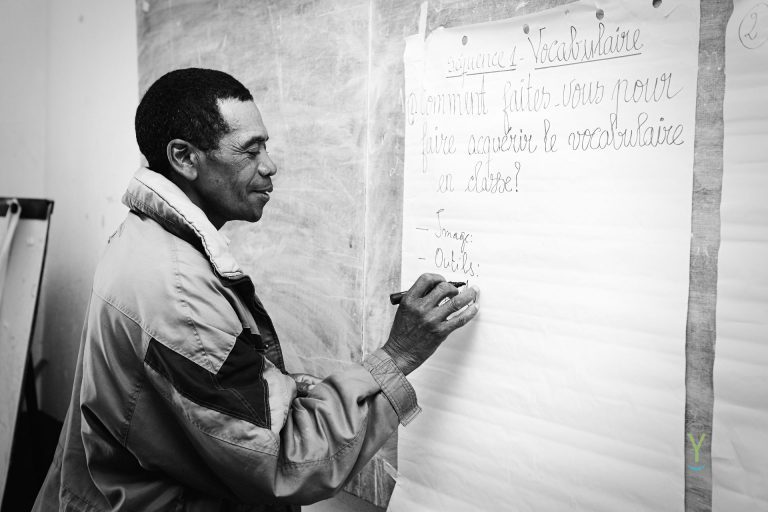 Séquence 1 - Vocabulaire
① Comment faites-vous pour
faire acquérir le vocabulaire
en classe?
- Image:
- Outils:
②
Y